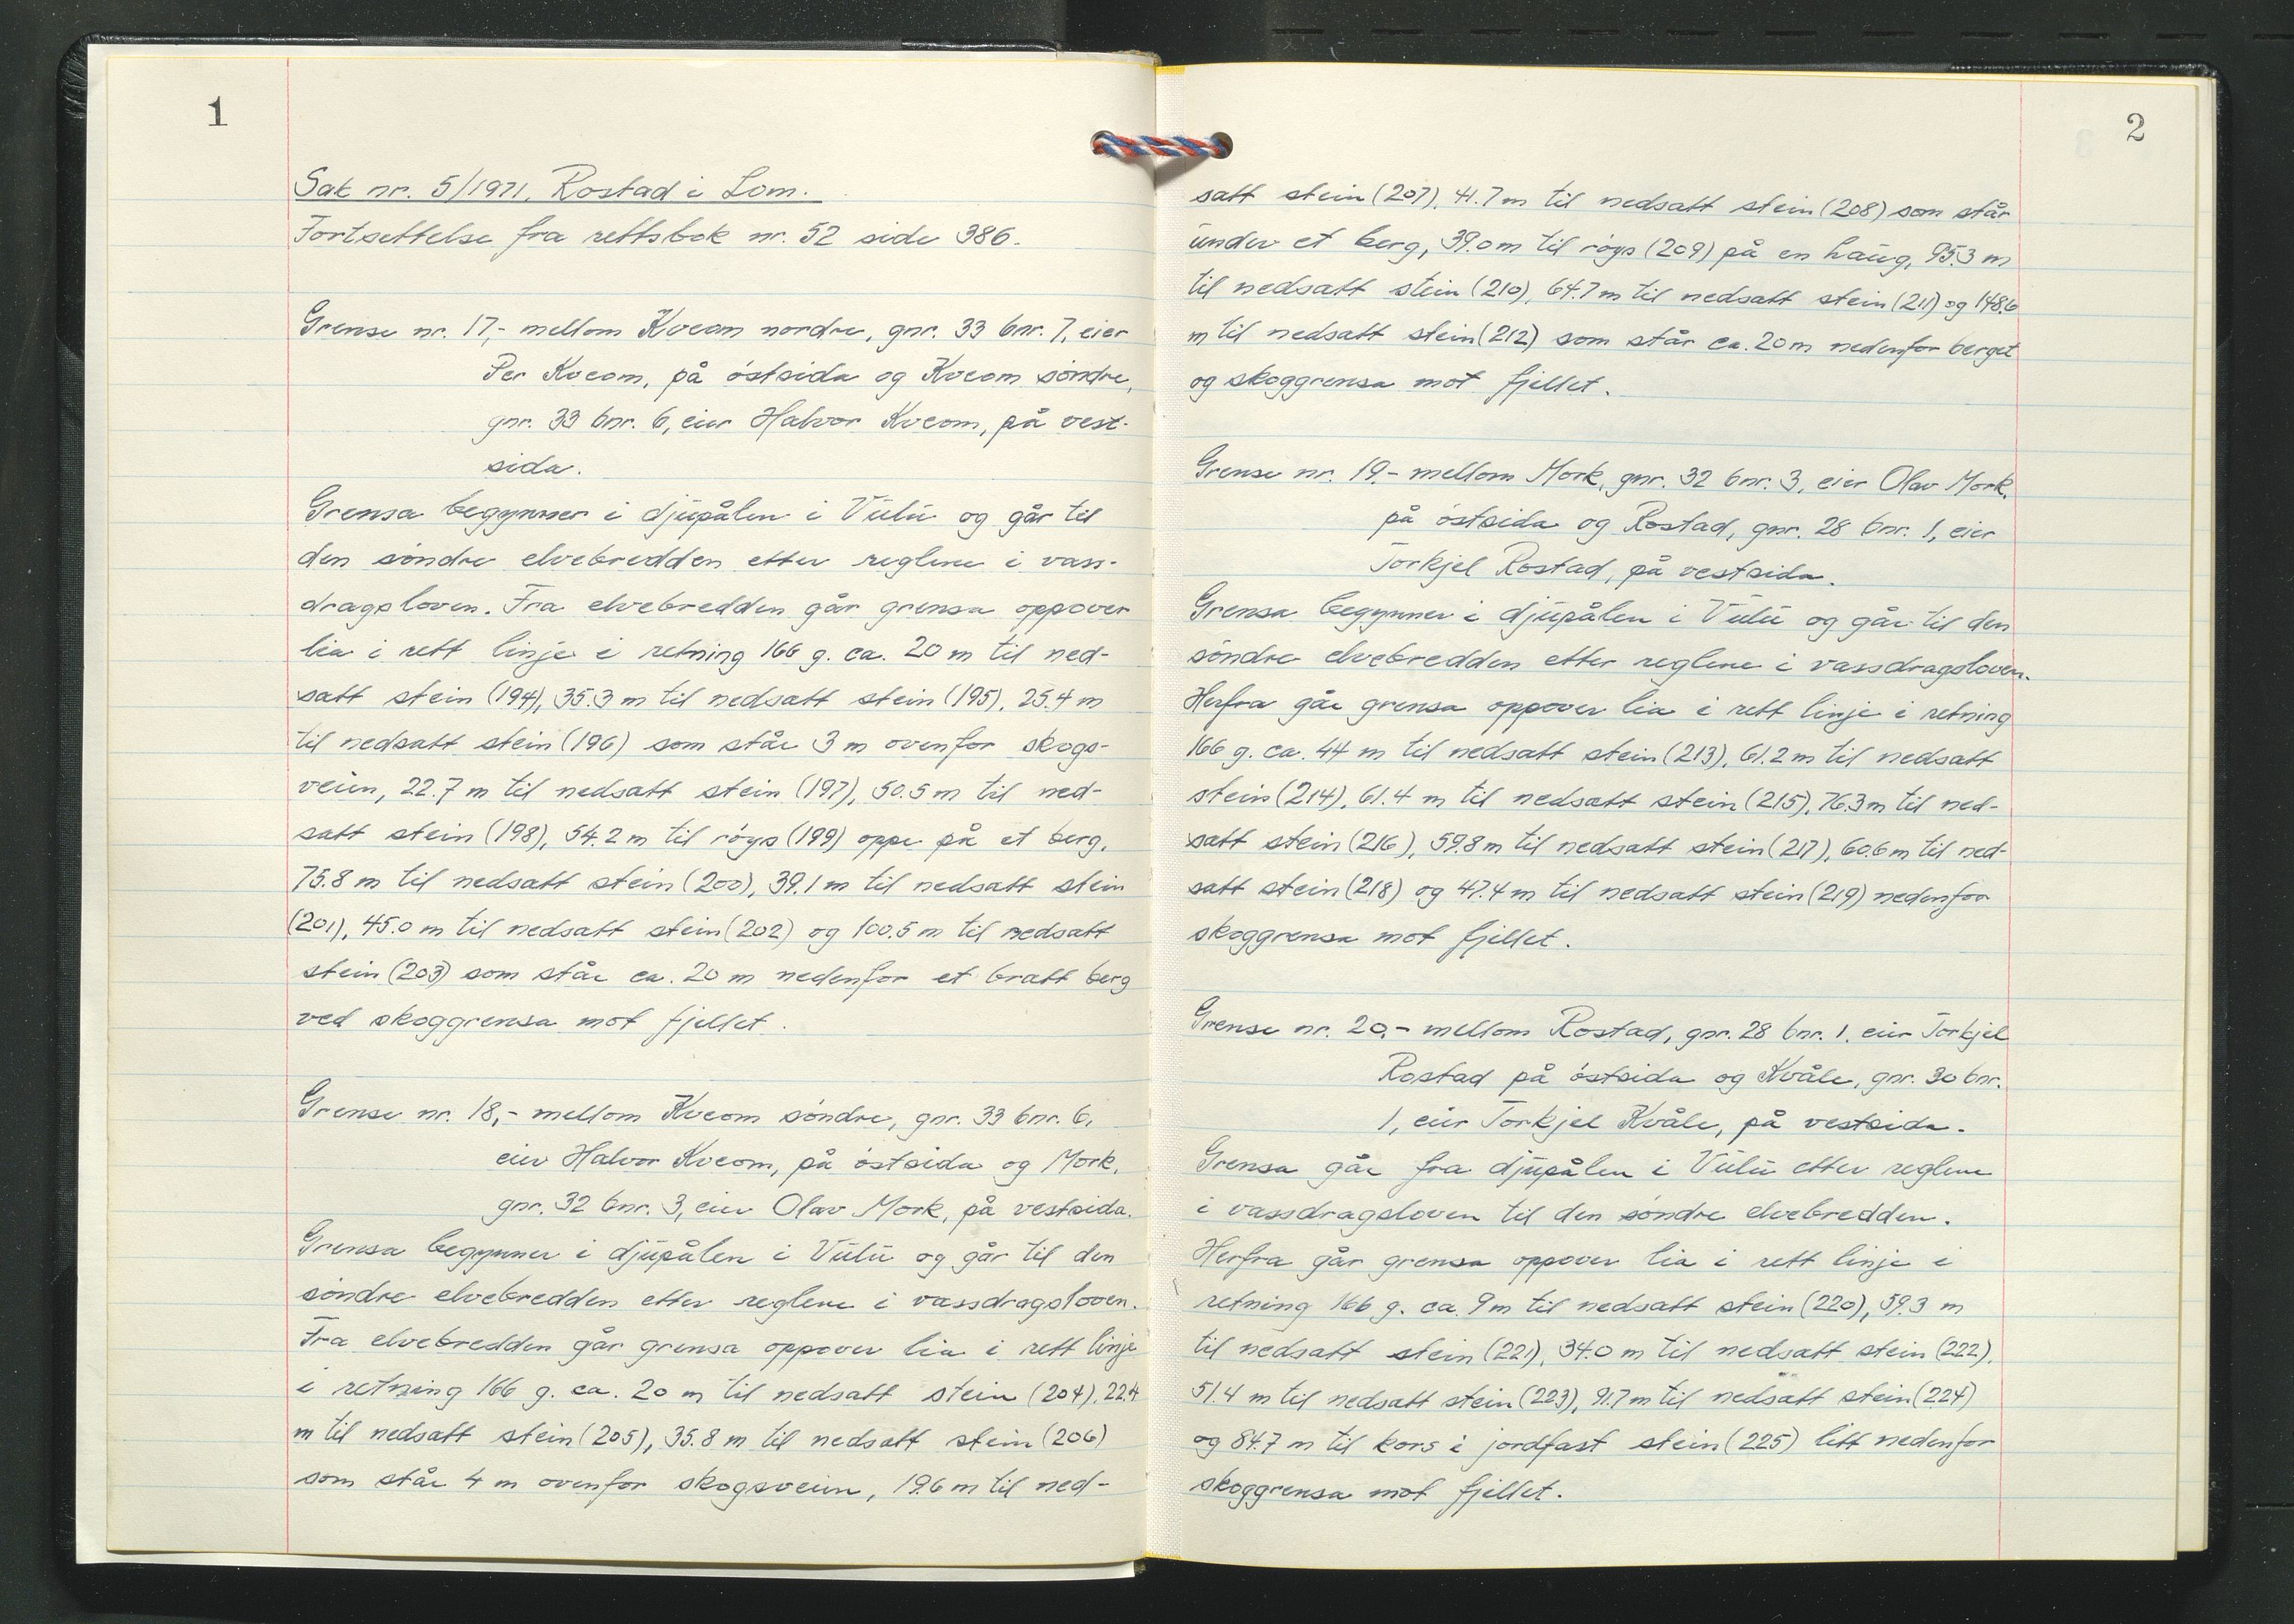 1
Sak nr. 5/1971. Rostad i Lom.
Fortsettelse fra rettsbok nr. 52 side 386.
Grense nr. 17,- mellom Kveom nordre, gnr. 33 bnr. 7, eier
Per Kveom, på østsida og Kveom søndre,
gnr. 33 bnr. 6, eier Halvor Kveom, på vest-
sida.
Grensa begynner i djupålen i Vulu og går til
den søndre elvebredden etter reglene i vass-
dragsloven. Fra elvebredden går grensa oppover
lia i rett linje i retning 166 g. ca. 20 m til ned-
satt stein (194), 35.3 m til nedsatt stein (195), 25.4 m
til nedsatt stein (196) som står 3 m ovenfor skogs-
veien, 22.7 m til nedsatt stein (197), 50.5 m til ned-
satt stein (198), 54.2 m til røys (199) oppe på et berg,
75.8 m til nedsatt stein (200), 39.1 m til nedsatt stein
(201), 45.0 m til nedsatt stein (202) og 100.5 m til nedsatt
stein (203) som står ca. 20 m nedenfor et bratt berg
ved skoggrensa mot fjellet.
Grense nr. 18,- mellom Kveom søndre, gnr. 33 bnr. 6,
eier Halvor Kveom, på østsida og Mork,
gnr. 32 bnr. 3, eier Olav Mork, på vestsida.
Grensa begynner i djupålen i Vulu og går til den
søndre elvebredden etter reglene i vassdragsloven.
Fra elvebredden går grensa oppover lia i rett linje
i retning 166 g. ca. 20 m til nedsatt stein (204), 22.4
m til nedsatt stein (205), 35.8 m til nedsatt stein (206)
som står 4 m ovenfor skogsveien, 19.6 m til ned-
2
satt stein (207), 41.7 m til nedsatt stein (208) som står
under et berg, 39.0 m til røys (209) på en haug, 95.3 m
til nedsatt stein (210), 64.7 m til nedsatt stein (211) og 148.6
m til nedsatt stein (212) som står ca. 20 m nedenfor berget
og skoggrensa mot fjellet.
Grense nr. 19,- mellom Mork, gnr. 32 bnr. 3, eier Olav Mork,
på østsida og Rostad, gnr. 28 bnr. 1, eier
Torkjel Rostad, på vestsida.
Grensa begynner i djupålen i Vulu og går til den
søndre elvebredden etter reglene i vassdragsloven.
Herfra går grensa oppover lia i rett linje i retning
166 g. ca. 44 m til nedsatt stein (213), 61.2 m til nedsatt
stein (214), 61.4 m til nedsatt stein (215), 76.3 m til ned-
satt stein (216), 59.8 m til nedsatt stein (217), 60.6 m til ned-
satt stein (218) og 47.4 m til nedsatt stein (219) nedenfor
skoggrensa mot fjellet.
Grense nr. 20,- mellom Rostad, gnr. 28 bnr. 1, eier Torkjel
Rostad på østsida og Kvåle, gnr. 30 bnr.
1, eier Torkjel Kvåle, på vestsida.
Grensa går fra djupålen i Vulu etter reglene
i vassdragsloven til den søndre elvebredden.
Herfra går grensa oppover lia i rett linje i
retning 166 g. ca. 9 m til nedsatt stein (220), 59.3 m
til nedsatt stein (221), 34.0 m til nedsatt stein (222),
51.4 m til nedsatt stein (223), 91.7 m til nedsatt stein (224)
og 84.7 m til kors i jordfast stein (225) litt nedenfor
skoggrensa mot fjellet.